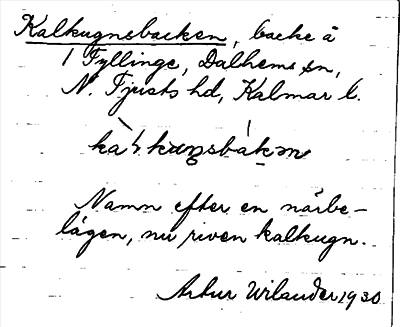 Kalkugnsbacken, backe å
1 Fyllinge, Dalhems sn,
N. Tjusts hd, Kalmar l.
Namn efter en närbe-
lägen, nu riven kalkugn.
Artur Wilander 1930